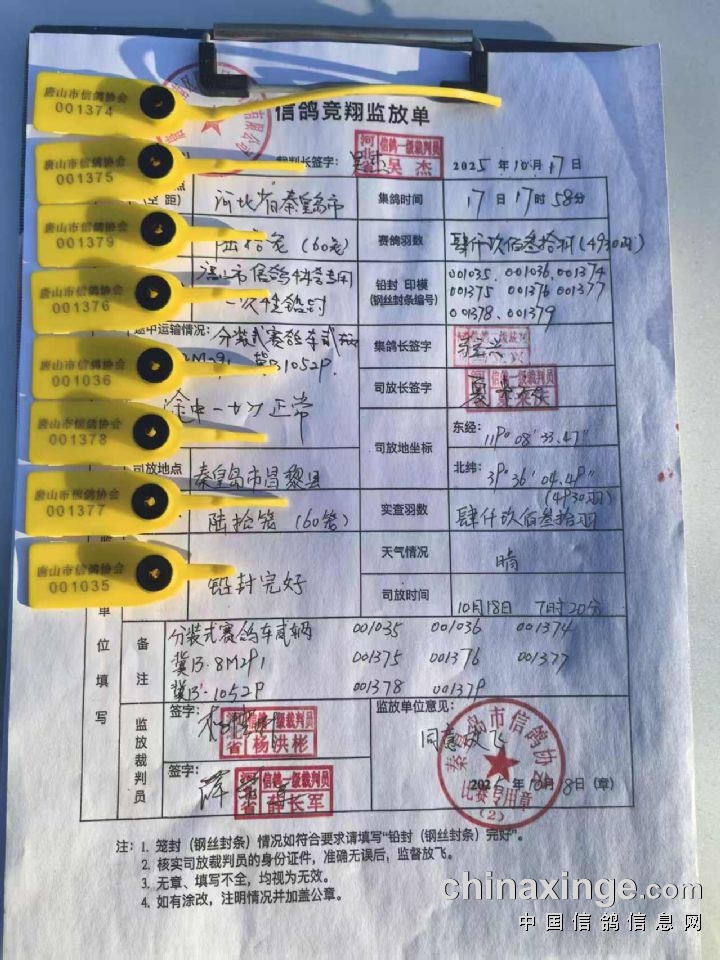 信鸽竞翔监放单
唐山市信鸽协会
001374
裁判长签字:
河北省
信鸽一级裁判员
吴杰
2025年10月17日
唐山市信鸽协会
001375
河北省秦皇岛市
集鸽时间
17日17时58分
唐山市信鸽协会
001379
陆拾笼(60笼)
赛鸽羽数
肆仟玖佰叁拾羽(4930羽)
唐山市信鸽协会
001376
唐山市信鸽协会专用
一次性铅封
铅封 印模
(钢丝封条编号)
001035、001036、001374
001375 001376 001377
001378、001379
途中运输情况:
分装式赛鸽车贰辆
冀B1052P
集鸽长签字
唐山市信鸽协会
001036
途中一切正常
司放长签字
信鸽一级裁判员
唐山市信鸽协会
001378
司放地坐标
东经:
119°08′33.47″
北纬:
39°36′04.49″
司放地点
秦皇岛市昌黎县
唐山市信鸽协会
001377
陆拾笼(60笼)
实查羽数
肆仟玖佰叁拾羽
(4930羽)
唐山市信鸽协会
001035
铅封完好
天气情况
晴
司放时间
10月18日 7时20分
单位填写
备注
分装式赛鸽车贰辆
冀B·8M2P1
冀B·1052P
001035 001036 001374
001375 001376 001377
001378 001379
监放裁判员
签字:
信鸽一级裁判员
省杨洪彬
签字:
信鸽一级裁判员
省薛长军
监放单位意见:
同意放飞
秦皇岛市信鸽协会
比赛专用章
(2)
2025年10月18日(章)
注:1. 笼封(钢丝封条)情况如符合要求请填写“铅封(钢丝封条)完好”。
2. 核实司放裁判员的身份证件,准确无误后,监督放飞。
3. 无章、填写不全,均视为无效。
4. 如有涂改,注明情况并加盖公章。
chinaxinge.com
中国信鸽信息网